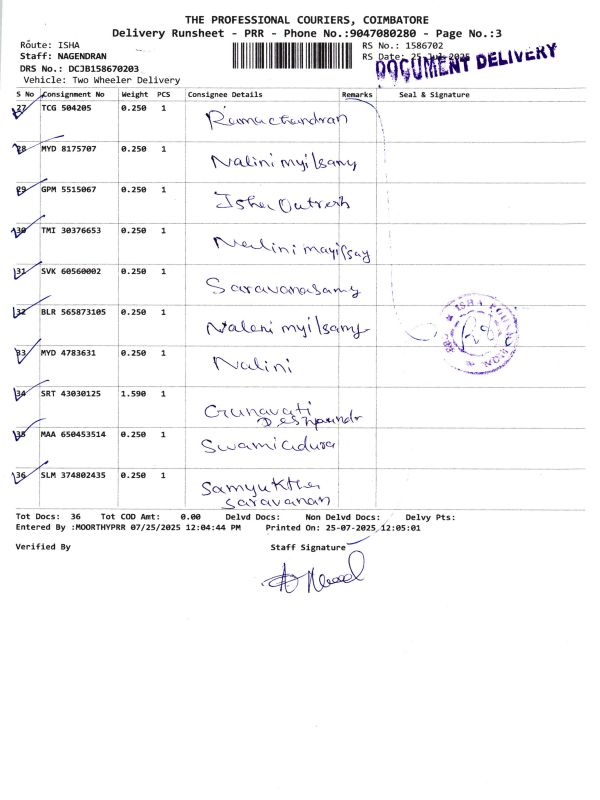 THE PROFESSIONAL COURIERS, COIMBATORE
Delivery Runsheet - PRR - Phone No.:9047080280 - Page No.:3
Route: ISHA
RS No.: 1586702
Staff: NAGENDRAN
RS Date: 25-Jul-2025
DOCUMENT DELIVERY
DRS No.: DCJB158670203
Vehicle: Two Wheeler Delivery
S No Consignment No Weight PCS Consignee Details Remarks Seal & Signature
27 TCG 504205 0.250 1 Ramachandran
28 MYD 8175707 0.250 1 Nalini myilsamy
29 GPM 5515067 0.250 1 Isha
30 TMI 30376653 0.250 1 Nalini mayilsay
31 SVK 60560002 0.250 1 Saravanasamy
32 BLR 565873105 0.250 1 Nalani myilsamy
ISHA FOUNDATION
33 MYD 4783631 0.250 1 Nalini
34 SRT 43030125 1.590 1 Gunavati
Deshpandr
35 MAA 650453514 0.250 1 Swamiadura
36 SLM 374802435 0.250 1 Samyuktha
saravanan
Tot Docs: 36 Tot COD Amt: 0.00 Delvd Docs: Non Delvd Docs: Delvy Pts:
Entered By :MOORTHYPRR 07/25/2025 12:04:44 PM Printed On: 25-07-2025 12:05:01
Verified By Staff Signature